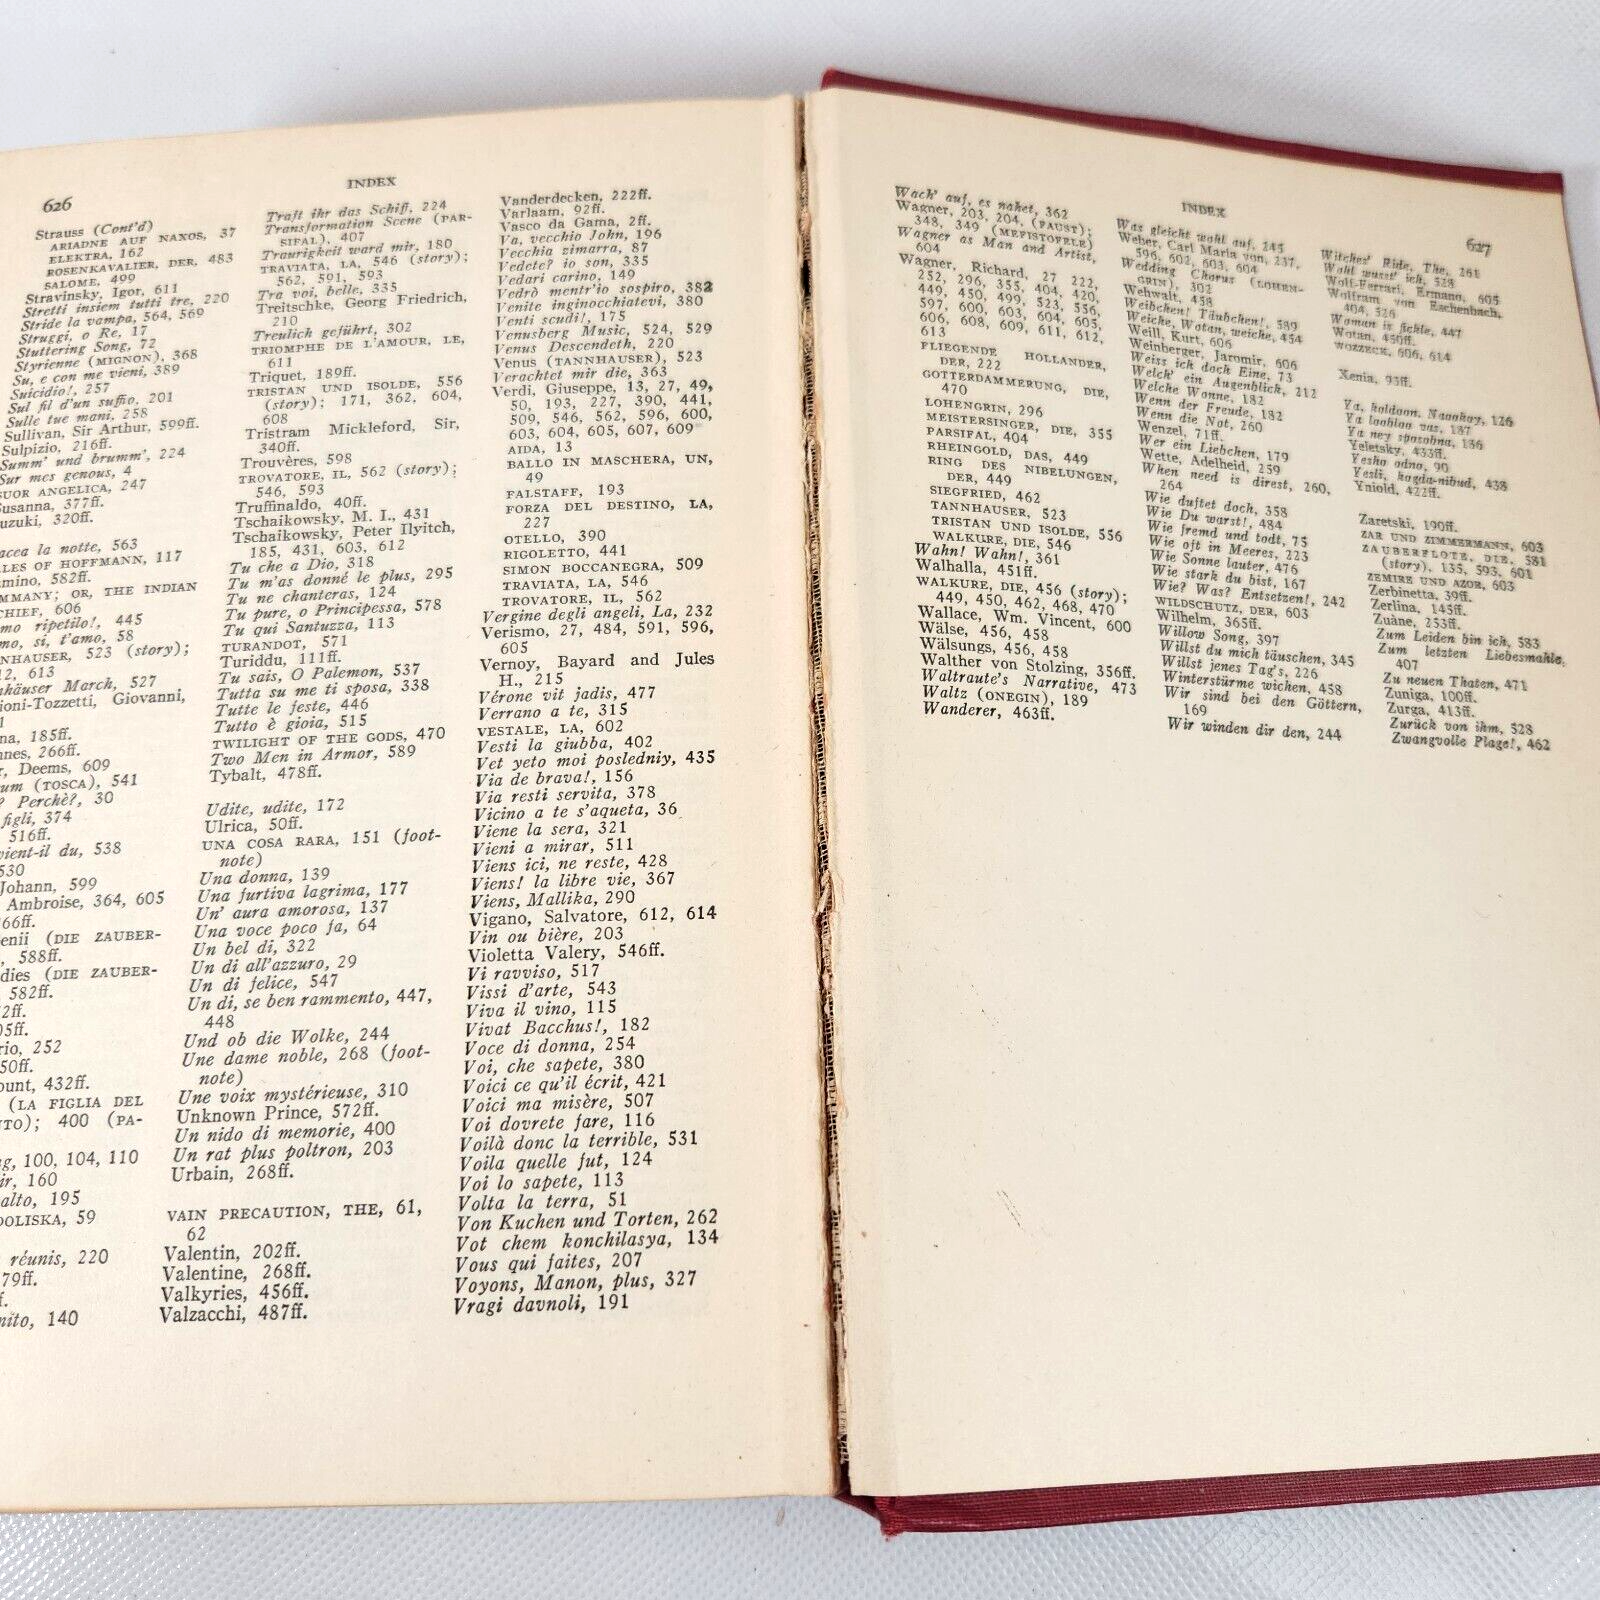 626
INDEX
Strauss (Cont'd)
ARIADNE AUF NAXOS, 37
ELEKTRA, 162
ROSENKAVALIER, DER, 483
SALOME, 499
Stravinsky, Igor, 611
Stretti insiem tutti tre, 220
Stride la vampa, 564, 569
Struggi, o Re, 17
Stuttering Song, 72
Styrienne (MIGNON), 368
Su, e con me vieni, 389
Suicidio!, 257
Sul fil d'un suffio, 201
Sulle tue mani, 258
Sullivan, Sir Arthur, 599ff.
Sulpizio, 216ff.
Summ' und brumm', 224
Sur mes genous, 4
SUOR ANGELICA, 247
Susanna, 377ff.
uzuki, 320ff.
acea la notte, 563
LES OF HOFFMANN, 117
mino, 582ff.
MMANY; OR, THE INDIAN
CHIEF, 606
mo ripetilo!, 445
mo, si, t'amo, 58
NNHAUSER, 523 (story);
12, 613
nhäuser March, 527
ioni-Tozzetti, Giovanni,
1
na, 185ff.
nnes, 266ff.
r, Deems, 609
um (TOSCA), 541
? Perchè?, 30
figli, 374
516ff.
vient-il du, 538
530
Johann, 599
Ambroise, 364, 605
66ff.
enii (DIE ZAUBER-
, 588ff.
dies (DIE ZAUBER-
582ff.
2ff.
05ff.
rio, 252
50ff.
ount, 432ff.
(LA FIGLIA DEL
NTO); 400 (PA-
ng, 100, 104, 110
ir, 160
alto, 195
DOLISKA, 59
réunis, 220
79ff.
f.
nito, 140
Traft ihr das Schiff, 224
Transformation Scene (PAR-
SIFAL), 407
Traurigkeit ward mir, 180
TRAVIATA, LA, 546 (story);
562, 591, 593
Tra voi, belle, 335
Treitschke, Georg Friedrich,
210
Treulich geführt, 302
TRIOMPHE DE L'AMOUR, LE,
611
Triquet, 189ff.
TRISTAN UND ISOLDE, 556
(story); 171, 362, 604,
608
Tristram Mickleford, Sir,
340ff.
Trouvères, 598
TROVATORE, IL, 562 (story);
546, 593
Truffinaldo, 40ff.
Tschaikowsky, M. I., 431
Tschaikowsky, Peter Ilyitch,
185, 431, 603, 612
Tu che a Dio, 318
Tu m'as donné le plus, 295
Tu ne chanteras, 124
Tu pure, o Principessa, 578
Tu qui Santuzza, 113
TURANDOT, 571
Turiddu, 111ff.
Tu sais, O Palemon, 537
Tutta su me ti sposa, 338
Tutte le feste, 446
Tutto è gioia, 515
TWILIGHT OF THE GODS, 470
Two Men in Armor, 589
Tybalt, 478ff.
Udite, udite, 172
Ulrica, 50ff.
UNA COSA RARA, 151 (foot-
note)
Una donna, 139
Una furtiva lagrima, 177
Un' aura amorosa, 137
Una voce poco fa, 64
Un bel di, 322
Un di all'azzuro, 29
Un di felice, 547
Un di, se ben rammento, 447,
448
Und ob die Wolke, 244
Une dame noble, 268 (foot-
note)
Une voix mystérieuse, 310
Unknown Prince, 572ff.
Un nido di memorie, 400
Un rat plus poltron, 203
Urbain, 268ff.
VAIN PRECAUTION, THE, 61,
62
Valentin, 202ff.
Valentine, 268ff.
Valkyries, 456ff.
Valzacchi, 487ff.
Vanderdecken, 222ff.
Varlaam, 92ff.
Vasco da Gama, 2ff.
Va, vecchio John, 196
Vecchia zimarra, 87
Vedete? io son, 335
Vedari carino, 149
Vedrò mentr'io sospiro, 382
Venite inginocchiatevi, 380
Venti scudi!, 175
Venusberg Music, 524, 529
Venus Descendeth, 220
Venus (TANNHAUSER), 523
Verachtet mir die, 363
Verdi, Giuseppe, 13, 27, 49,
50, 193, 227, 390, 441,
509, 546, 562, 596, 600,
603, 604, 605, 607, 609
AIDA, 13
BALLO IN MASCHERA, UN,
49
FALSTAFF, 193
FORZA DEL DESTINO, LA,
227
OTELLO, 390
RIGOLETTO, 441
SIMON BOCCANEGRA, 509
TRAVIATA, LA, 546
TROVATORE, IL, 562
Vergine degli angeli, La, 232
Verismo, 27, 484, 591, 596,
605
Vernoy, Bayard and Jules
H., 215
Vérone vit jadis, 477
Verrano a te, 315
VESTALE, LA, 602
Vesti la giubba, 402
Vet yeto moi posledniy, 435
Via de brava!, 156
Via resti servita, 378
Vicino a te s'aqueta, 36
Viene la sera, 321
Vieni a mirar, 511
Viens ici, ne reste, 428
Viens! la libre vie, 367
Viens, Mallika, 290
Vigano, Salvatore, 612, 614
Vin ou bière, 203
Violetta Valery, 546ff.
Vi ravviso, 517
Vissi d'arte, 543
Viva il vino, 115
Vivat Bacchus!, 182
Voce di donna, 254
Voi, che sapete, 380
Voici ce qu'il écrit, 421
Voici ma misère, 507
Voi dovrete fare, 116
Voilà donc la terrible, 531
Voila quelle fut, 124
Voi lo sapete, 113
Volta la terra, 51
Von Kuchen und Torten, 262
Vot chem konchilasya, 134
Vous qui faites, 207
Voyons, Manon, plus, 327
Vragi davnoli, 191
INDEX
627
Wach' auf, es nahet, 362
Wagner, 203, 204, (FAUST);
348, 349 (MEFISTOFELE)
Wagner as Man and Artist,
604
Wagner, Richard, 27 222,
252, 296, 355, 404, 420,
449, 450, 499, 523, 556,
597, 600, 603, 604, 605,
606, 608, 609, 611, 612,
613
FLIEGENDE HOLLANDER,
DER, 222
GOTTERDAMMERUNG, DIE,
470
LOHENGRIN, 296
MEISTERSINGER, DIE, 355
PARSIFAL, 404
RHEINGOLD, DAS, 449
RING DES NIBELUNGEN,
DER, 449
SIEGFRIED, 462
TANNHAUSER, 523
TRISTAN UND ISOLDE, 556
WALKURE, DIE, 546
Wahn! Wahn!, 361
Walhalla, 451ff.
WALKURE, DIE, 456 (story);
449, 450, 462, 468, 470
Wallace, Wm. Vincent, 600
Wälse, 456, 458
Wälsungs, 456, 458
Walther von Stolzing, 356ff.
Waltraute's Narrative, 473
Waltz (ONEGIN), 189
Wanderer, 463ff.
Was gleicht wohl auf, 245
Weber, Carl Maria von, 237,
596, 602, 603, 604
Wedding Chorus (LOHEN-
GRIN), 302
Wehwalt, 458
Weibchen! Täubchen!, 589
Weiche, Wotan, weiche, 454
Weill, Kurt, 606
Weinberger, Jaromir, 606
Weiss ich doch Eine, 73
Welch' ein Augenblick, 212
Welche Wonne, 182
Wenn der Freude, 182
Wenn die Not, 260
Wenzel, 71ff.
Wer ein Liebchen, 179
Wette, Adelheid, 259
When need is direst, 260,
264
Wie duftet doch, 358
Wie Du warst!, 484
Wie fremd und todt, 75
Wie oft in Meeres, 223
Wie Sonne lauter, 476
Wie stark du bist, 167
Wie? Was? Entsetzen!, 242
WILDSCHUTZ, DER, 603
Wilhelm, 365ff.
Willow Song, 397
Willst du mich täuschen, 345
Willst jenes Tag's, 226
Winterstürme wichen, 458
Wir sind bei den Göttern,
169
Wir winden dir den, 244
Witches' Ride, The, 261
Wohl wusst' ich, 528
Wolf-Ferrari, Ermano, 605
Wolfram von Eschenbach,
404, 526
Woman is fickle, 447
Wotan, 450ff.
WOZZECK, 606, 614
Xenia, 93ff.
Ya, koldoon. Naoohoy, 126
Ya loobloo vas, 187
Ya ney sposobna, 136
Yeletsky, 433ff.
Yesho odno, 90
Yesli, kogda-nibud, 438
Yniold, 422ff.
Zaretski, 190ff.
ZAR UND ZIMMERMANN, 603
ZAUBERFLOTE, DIE, 581
(story), 135, 593, 601
ZEMIRE UND AZOR, 603
Zerbinetta, 39ff.
Zerlina, 145ff.
Zuàne, 253ff.
Zum Leiden bin ich, 583
Zum letzten Liebesmahle,
407
Zu neuen Thaten, 471
Zuniga, 100ff.
Zurga, 413ff.
Zurück von ihm, 528
Zwangvolle Plage!, 462